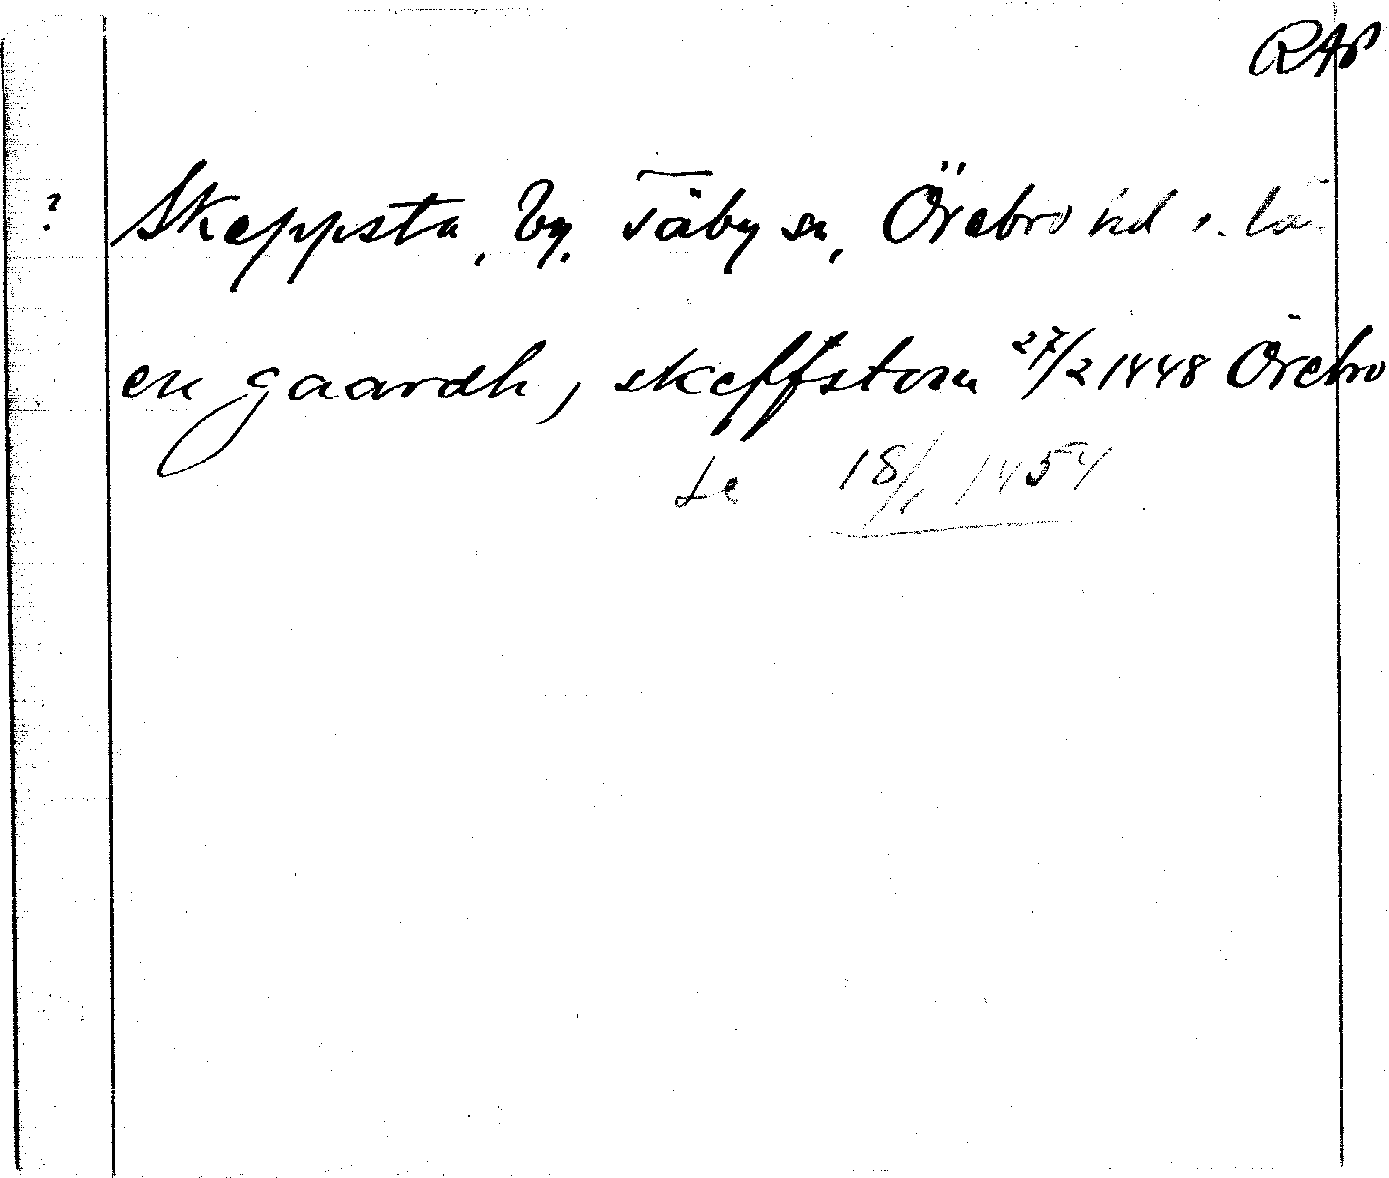 RAP
? Skeppsta, by, Täby sn, Örebro hd o. län
en gaardh, skeffstom 27/2 1448 Örebro
Se 18/1 1454